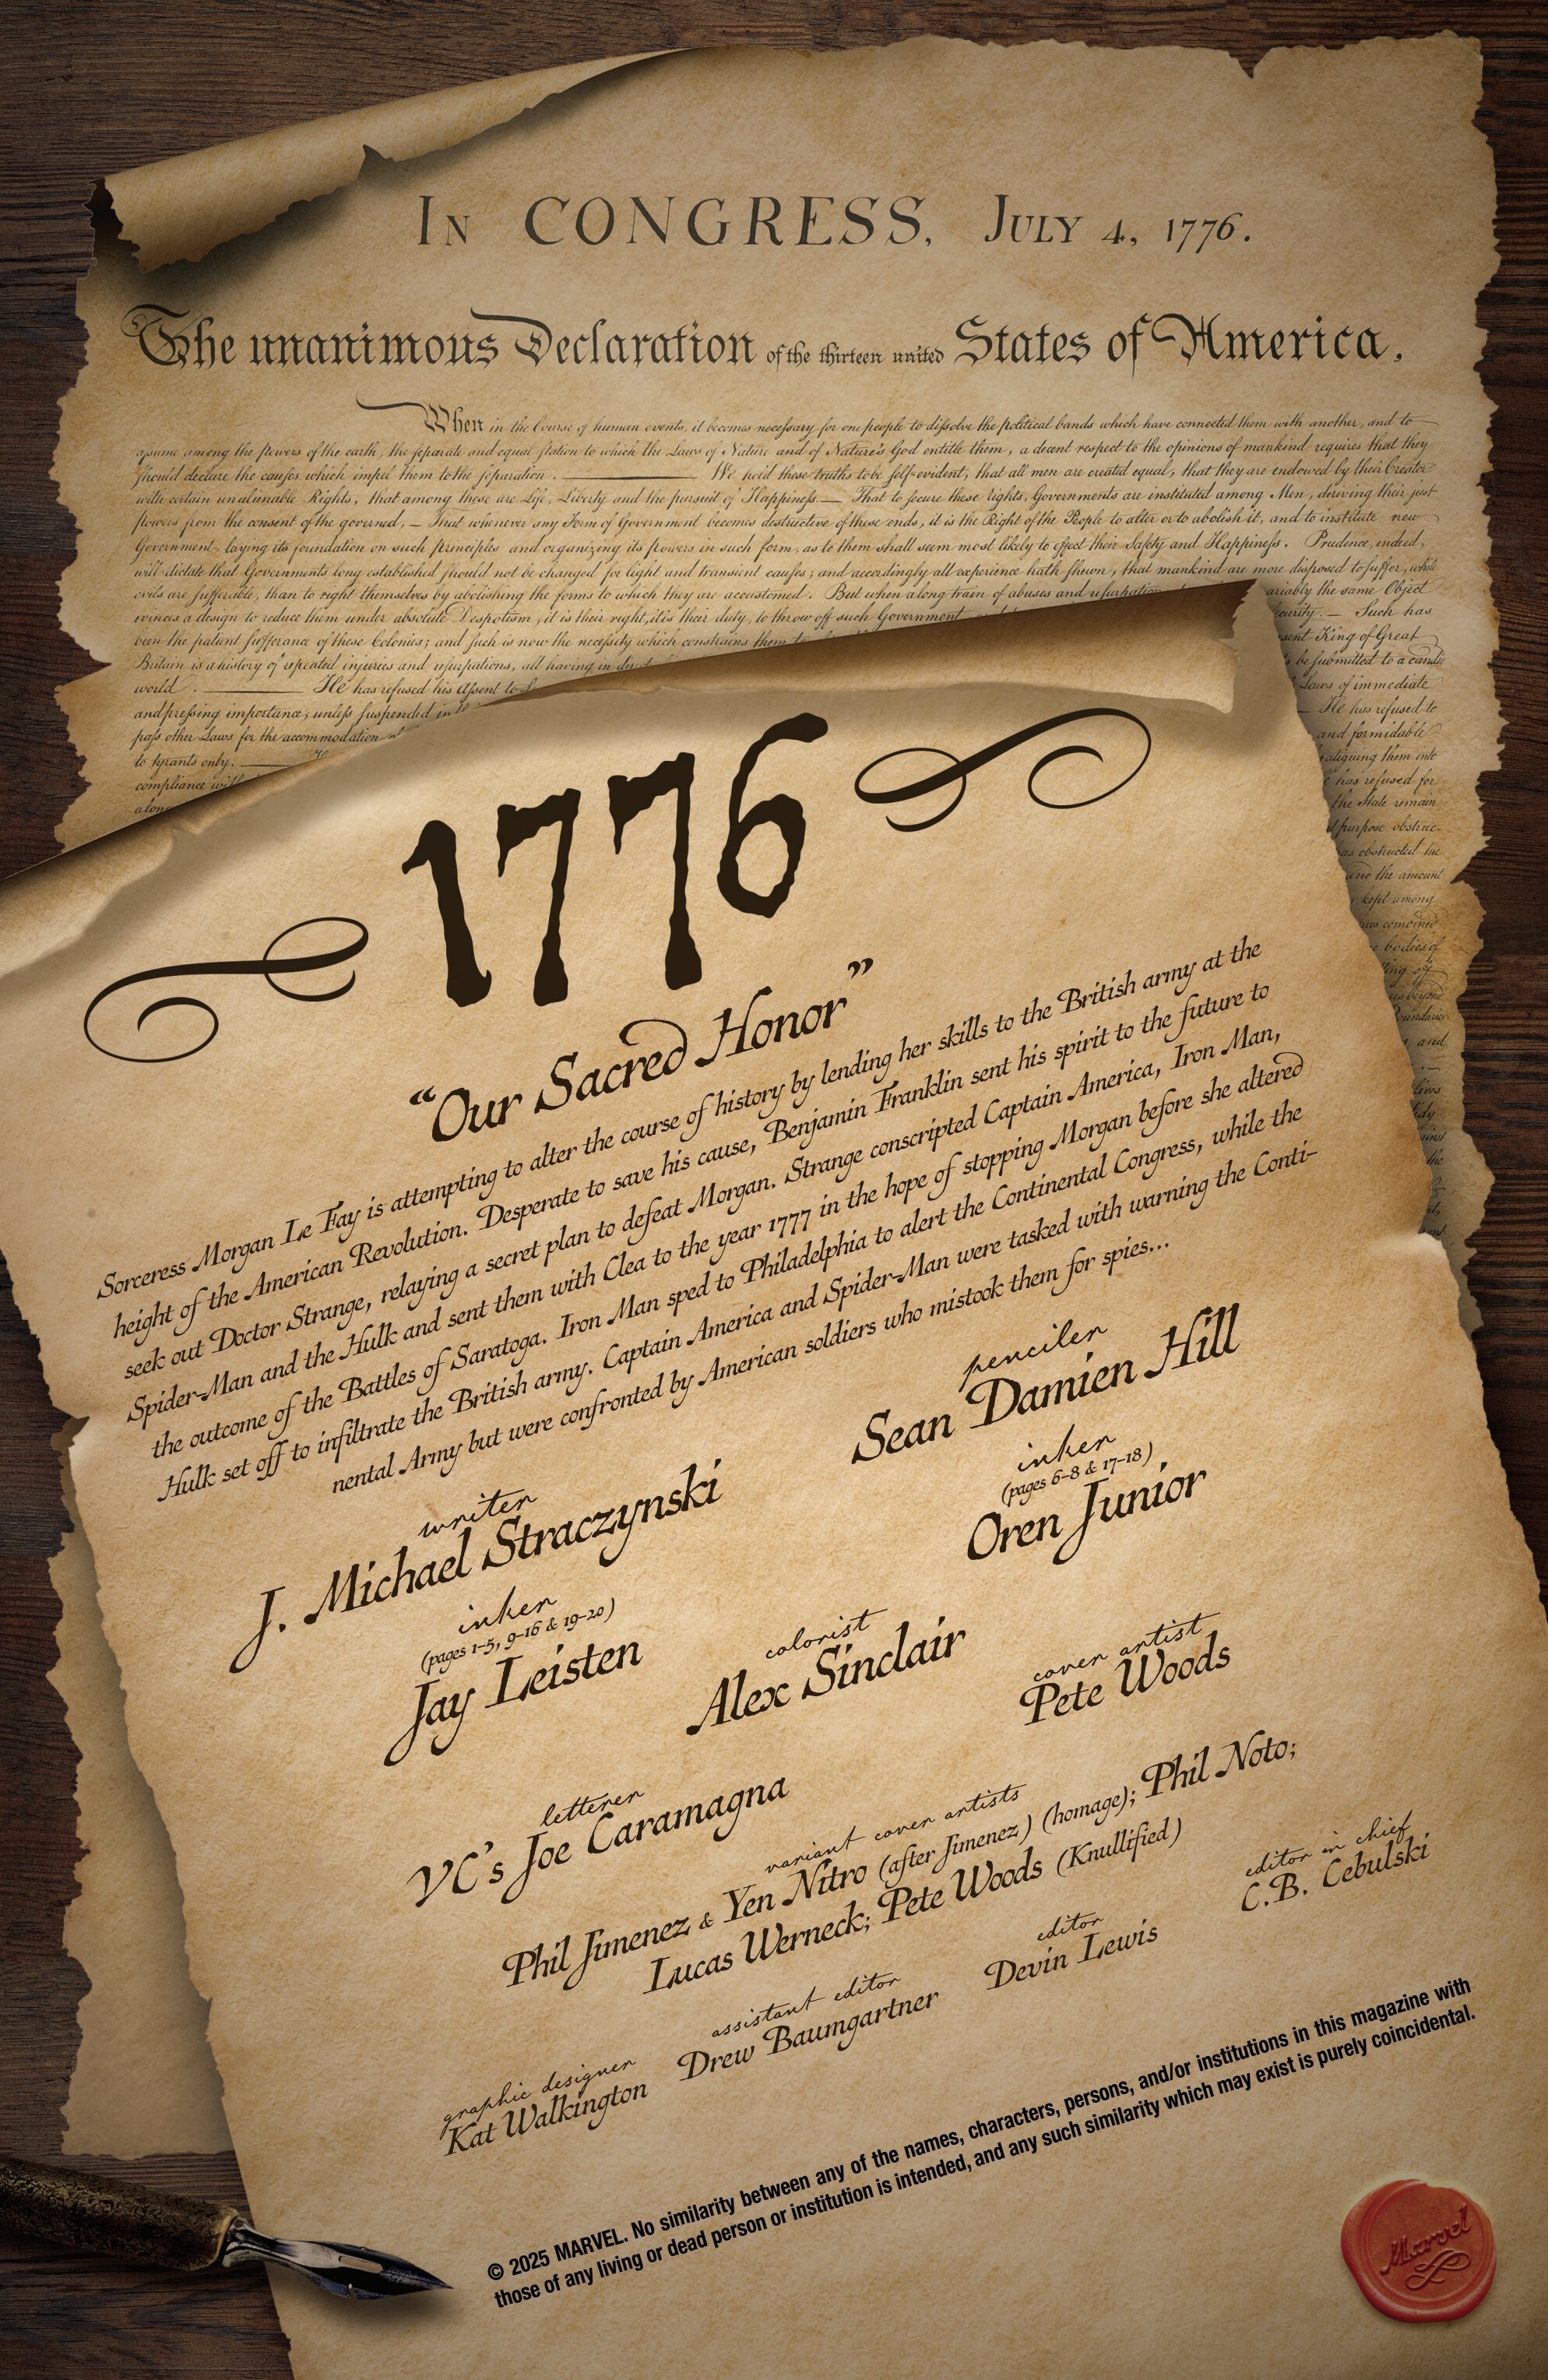 In CONGRESS, July 4, 1776.
The unanimous Declaration of the thirteen united States of America.
When in the Course of human events, it becomes necessary for one people to dissolve the political bands which have connected them with another, and to
assume among the powers of the earth, the separate and equal station to which the Laws of Nature and of Nature's God entitle them, a decent respect to the opinions of mankind requires that they
should declare the causes which impel them to the separation. We hold these truths to be self-evident, that all men are created equal, that they are endowed by their Creator
with certain unalienable Rights, that among these are Life, Liberty and the pursuit of Happiness.— That to secure these rights, Governments are instituted among Men, deriving their just
powers from the consent of the governed, — That whenever any Form of Government becomes destructive of these ends, it is the Right of the People to alter or to abolish it, and to institute new
Government, laying its foundation on such principles and organizing its powers in such form, as to them shall seem most likely to effect their Safety and Happiness. Prudence, indeed,
will dictate that Governments long established should not be changed for light and transient causes; and accordingly all experience hath shewn, that mankind are more disposed to suffer, while
evils are sufferable, than to right themselves by abolishing the forms to which they are accustomed. But when a long train of abuses and usurpations ariably the same Object
evinces a design to reduce them under absolute Despotism, it is their right, it is their duty, to throw off such Government Such has
been the patient sufferance of these Colonies; and such is now the necessity which constrains them to sent King of Great
Britain is a history of repeated injuries and usurpations, all having in be submitted to a candid
world. He has refused his Assent to Laws of immediate
and pressing importance, unless suspended in He has refused to
pass other Laws for the accommodation and formidable
to tyrants only.
has refused for
compliance
the State remain
purpose
obstructed the
and the amount
kept among
combined
bodies of
1776
“Our Sacred Honor”
Sorceress Morgan Le Fay is attempting to alter the course of history by lending her skills to the British army at the
height of the American Revolution. Desperate to save his cause, Benjamin Franklin sent his spirit to the future to
seek out Doctor Strange, relaying a secret plan to defeat Morgan. Strange conscripted Captain America, Iron Man,
Spider-Man and the Hulk and sent them with Clea to the year 1777 in the hope of stopping Morgan before she altered
the outcome of the Battles of Saratoga. Iron Man sped to Philadelphia to alert the Continental Congress, while the
Hulk set off to infiltrate the British army. Captain America and Spider-Man were tasked with warning the Conti-
nental Army but were confronted by American soldiers who mistook them for spies...
writer
J. Michael Straczynski
penciler
Sean Damien Hill
inker
(pages 1-5, 9-16 & 19-20)
Jay Leisten
inker
(pages 6-8 & 17-18)
Oren Junior
colorist
Alex Sinclair
cover artist
Pete Woods
letterer
VC's Joe Caramagna
variant cover artists
Phil Jimenez & Yen Nitro (after Jimenez) (homage); Phil Noto;
Lucas Werneck; Pete Woods (Knullified)
graphic designer
Kat Walkington
assistant editor
Drew Baumgartner
editor
Devin Lewis
editor in chief
C.B. Cebulski
© 2025 MARVEL. No similarity between any of the names, characters, persons, and/or institutions in this magazine with
those of any living or dead person or institution is intended, and any such similarity which may exist is purely coincidental.
Marvel